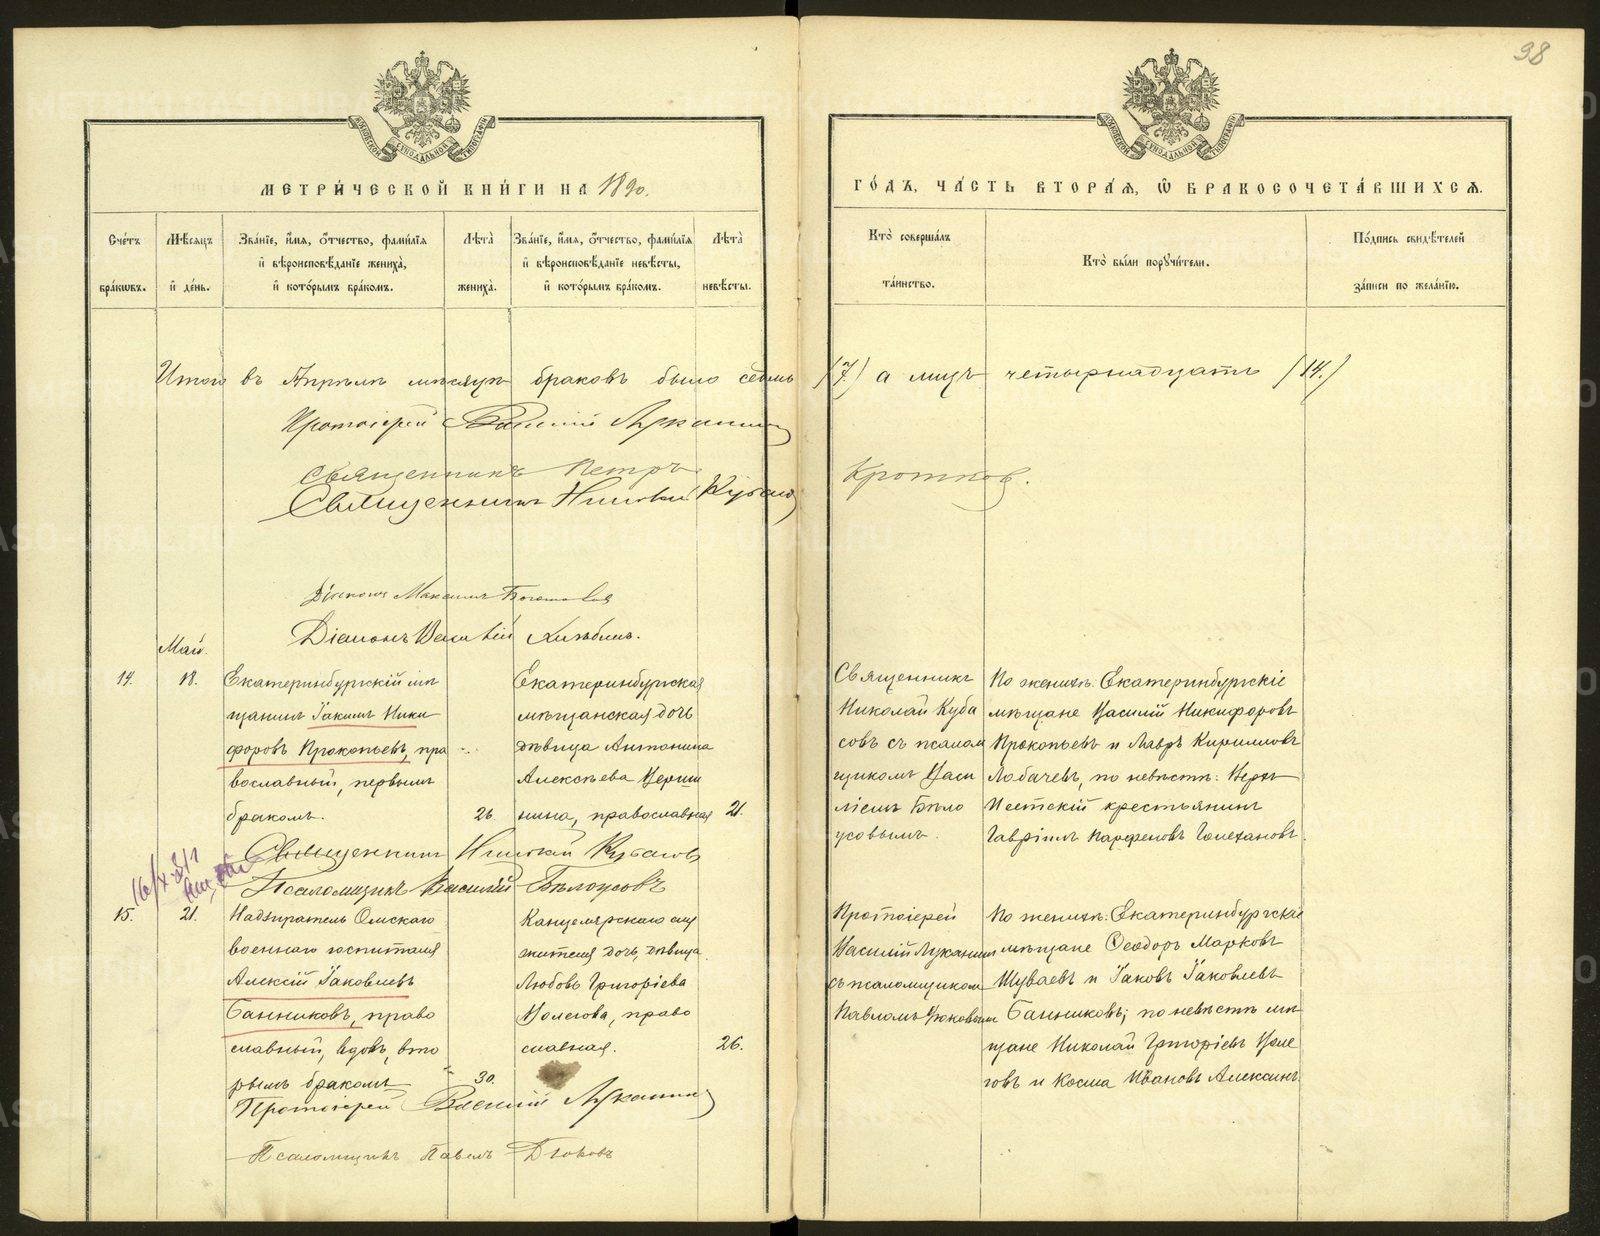 98
МЕТРИ́ЧЕСКОЙ КНИ́ГИ НА 1890.
ГО́ДЪ, ЧА́СТЬ ВТОРА́Я, Ѿ БРАКОСОЧЕТА́ВШИХСЯ.
Сче́тъ бра́кѡвъ.
Мѣ́сяцъ и де́нь.
Зва́нїе, и́мя, о́тчество, фами́лїя и вѣроисповѣ́данїе жениха̀, и кото́рымъ бра́комъ.
Лѣ́та жениха̀.
Зва́нїе, и́мя, о́тчество, фами́лїя и вѣроисповѣ́данїе невѣ́сты, и кото́рымъ бра́комъ.
Лѣ́та невѣ́сты.
Кто̀ соверша́лъ та́инство.
Кто̀ бы́ли пор​учи́тели.
По́дпись свидѣ́телей за́писи по жела́нїю.
Итого въ Апрѣлѣ мѣсяцѣ браковъ было семь (7.) а лицъ четырнадцать (14.)
Протоіерей Василій Луканинъ
Священникъ Петръ Кротковъ.
Священникъ Николай Кубасов
Діаконъ Максимъ
Діаконъ Василій
Май.
14.
18.
Екатеринбургскій мѣ
щанинъ Іакимъ Ники
форовъ Прокопьевъ, пра
вославный, первымъ
бракомъ.
26.
Екатеринбургская
мѣщанская дочь
дѣвица Антонина
Алексѣева
нина, православная
21.
Священникъ
Николай Куба
совъ съ псалом
щикомъ Васи
ліемъ Бѣло
усовымъ.
По женихѣ: Екатеринбургскіе
мѣщане Василій Никифоровъ
Прокопьевъ и Лавръ Кирилловъ
Лобачевъ, по невѣстѣ: Верхъ
Исетскій крестьянинъ
Гавріилъ Парфеновъ
Священникъ Николай Кубасовъ
Псаломщикъ Василій Бѣлоусовъ
15.
21.
Надзиратель Омскаго
военнаго госпиталя
Алексій Іаковлевъ
Банниковъ, право
славный, вдовъ, вто
рымъ бракомъ
30.
Канцелярскаго слу
жителя дочь, дѣвица
Любовь Григоріева
право
славная.
26.
Протоіерей
Василій Луканинъ
съ псаломщикомъ
Павломъ Дюковымъ
По женихѣ: Екатеринбургскіе
мѣщане Ѳеодоръ Марковъ
Шуваевъ и Іаковъ Іаковлевъ
Банниковъ; по невѣстѣ мѣ
щане Николай Григоріевъ
говъ и Косма Ивановъ Алексинъ.
Протоіерей Василій Луканинъ
Псаломщикъ Павелъ Дюковъ